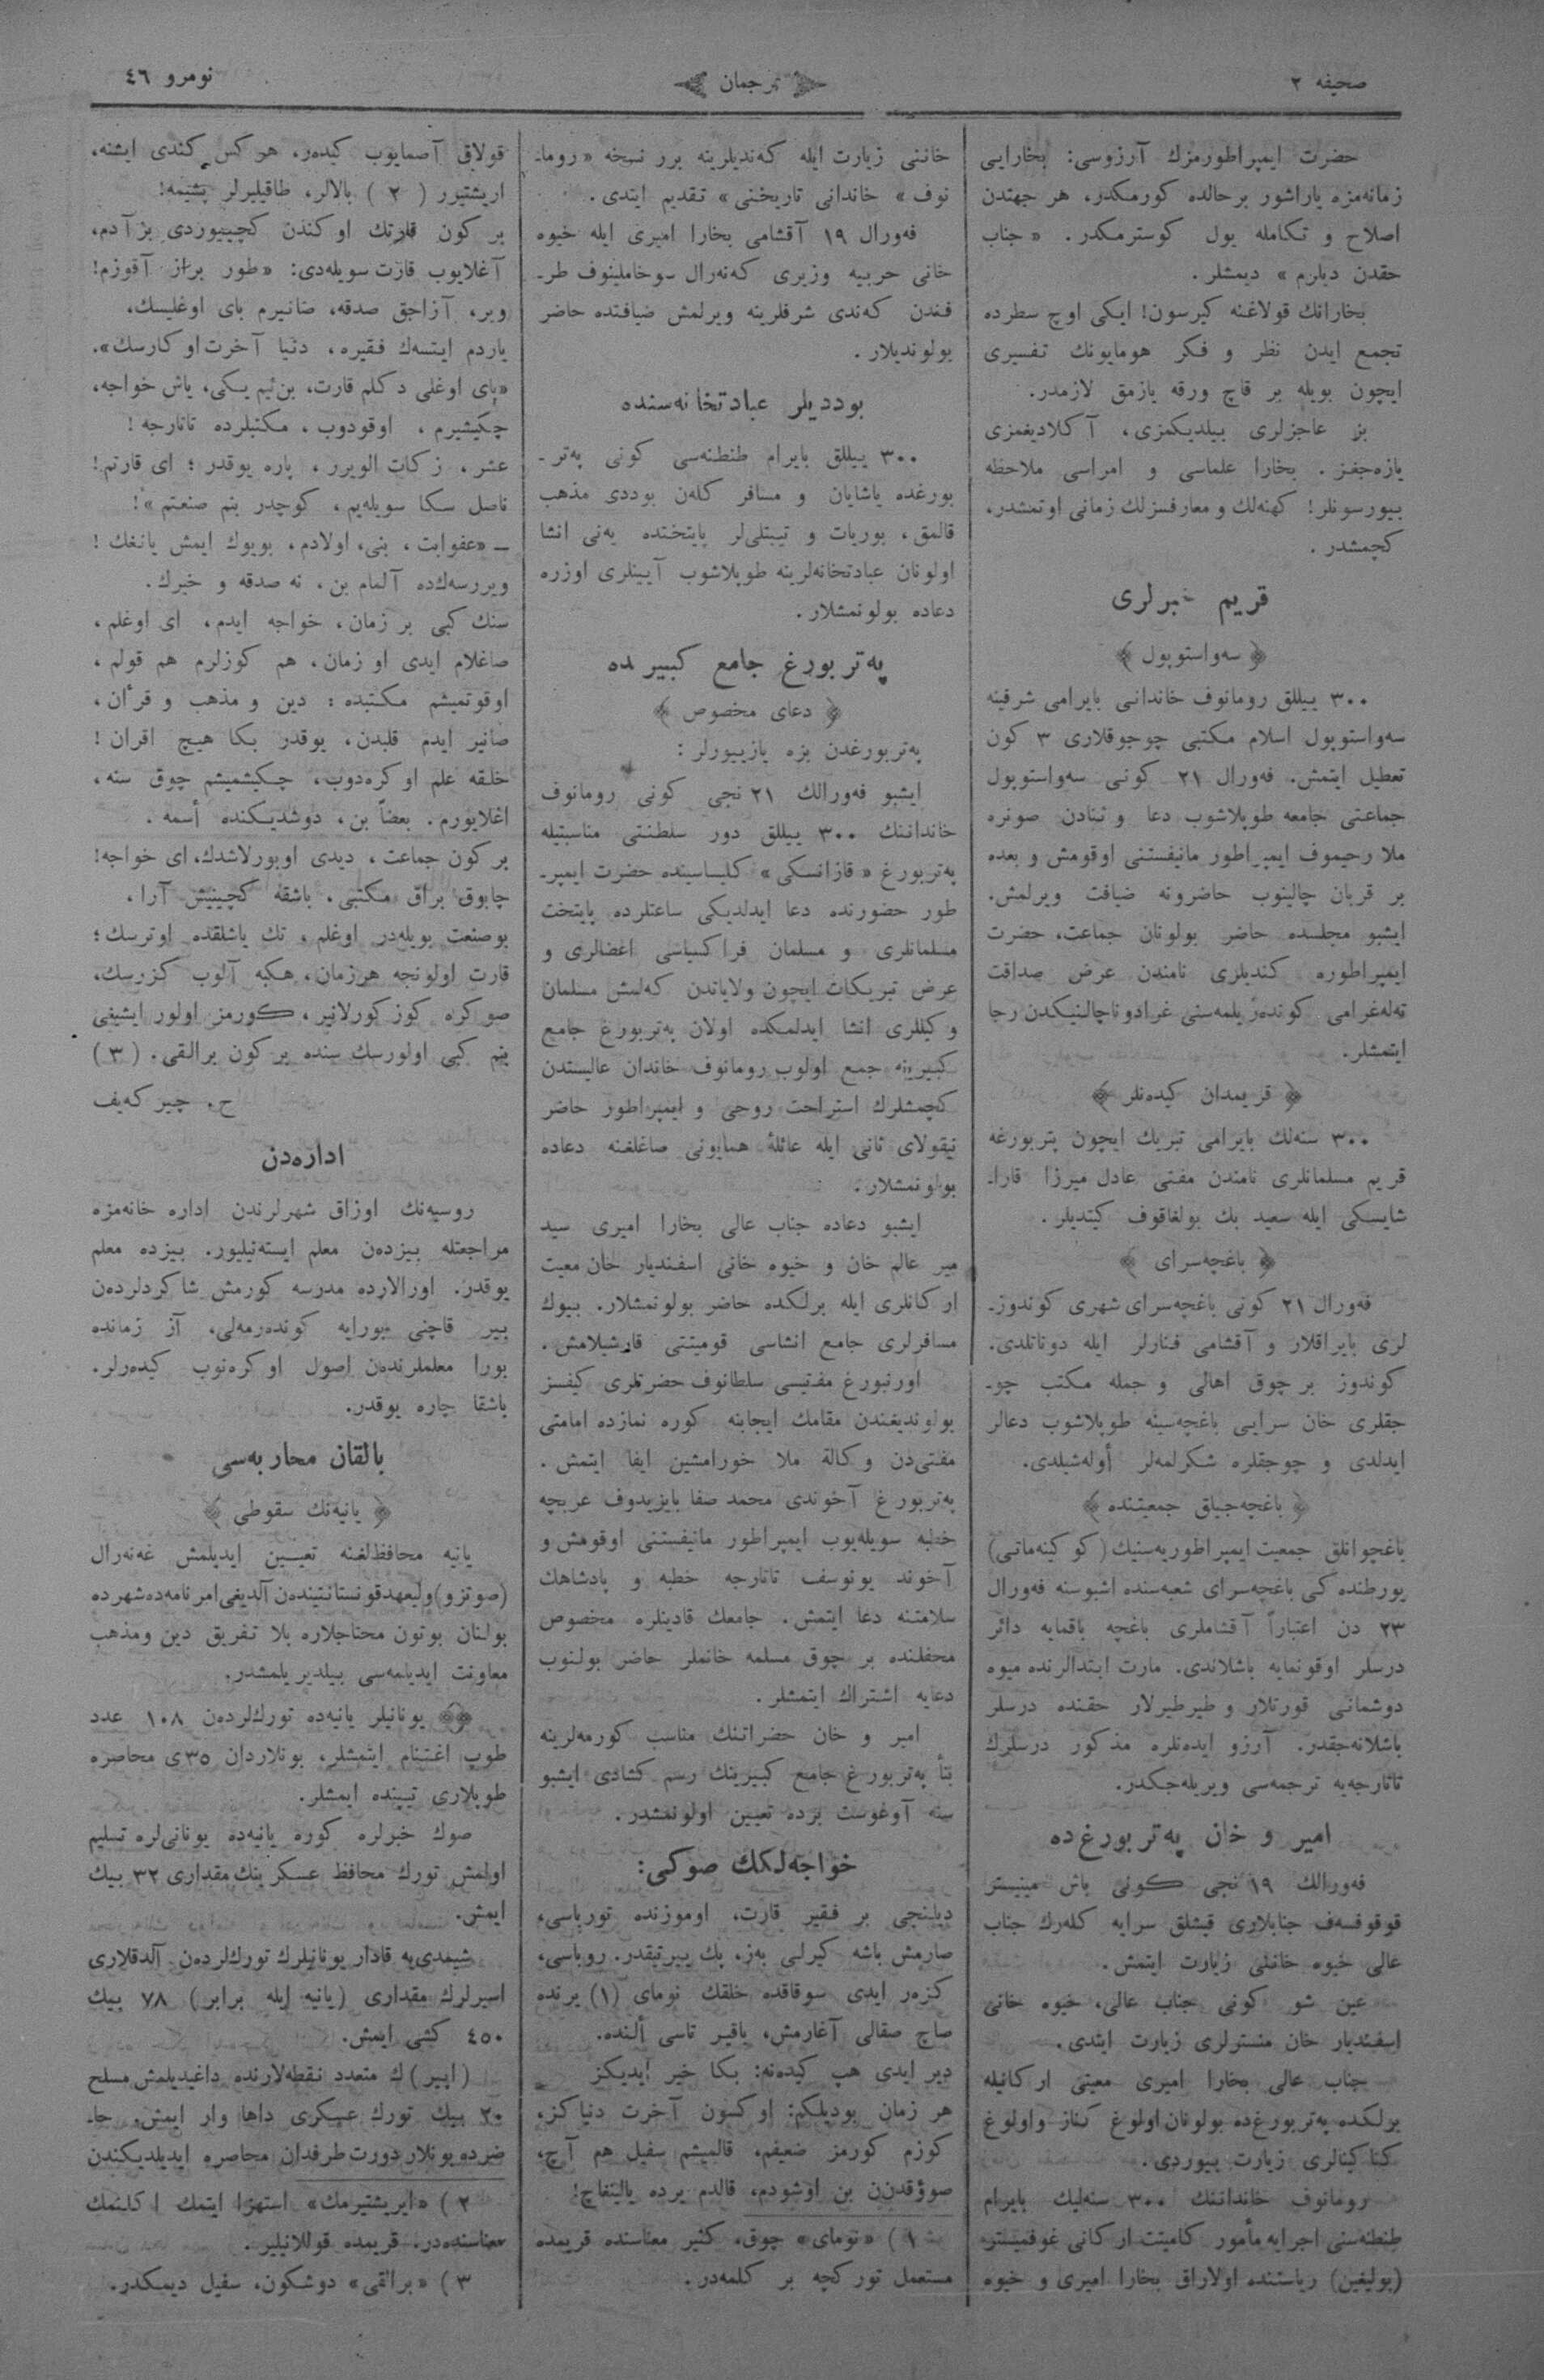 صحیفه ٢
ترجمان
نومرو ٤٦
حضرت ایمپراطورمزك آرزوسی: بخارایی
زمانه‌مزه یاراشور برحالده كورمكدر، هر جهتدن
اصلاح و تكامله یول كوسترمكدر. «جناب
حقدن دیلرم» دیمشلر.
بخارانك قولاغنه كیرسون! ایكی اوچ سطرده
تجمع ایدن نظر و فكر هومایونك تفسیری
ایچون بویله بر قاچ ورقه یازمق لازمدر.
بز عاجزلری بیلدیكمزی، آكلادیغمزی
یازه‌جغز. بخارا علماسی و امراسی ملاحظه
بیورسونلر! كهنه‌لك و معارفسزلك زمانی اوتمشدر،
كچمشدر.
قریم خبرلری
﴿ سه‌واستوپول ﴾
٣٠٠ ییللق رومانوف خاندانی بایرامی شرفینه
سه‌واستوپول اسلام مكتبی چوجوقلاری ٣ كون
تعطیل ایتمش. فه‌ورال ٢١ كونی سه‌واستوپول
جماعتی جامعه طوپلاشوب دعا و ثنادن صوثره
ملا رحیموف ایمپراطور مانیفستنی اوقومش و بعده
بر قربان چالینوب حاضرونه ضیافت ویرلمش.
ایشبو مجلسده حاضر بولونان جماعت، حضرت
ایمپراطوره كندیلری نامندن عرض صداقت
ته‌له‌غرامی كونده‌ریلمه‌سنی غرادوناچالنیكدن رجا
ایتمشلر.
﴿ قریمدان كیده‌نلر ﴾
٣٠٠ سنه‌لك بایرامی تبریك ایچون پتربورغه
قریم مسلمانلری نامندن مفتی عادل میرزا قارا-
شایسكی ایله سعید بك بولغاقوف كیتدیلر.
﴿ باغچه‌سرای ﴾
فه‌ورال ٢١ كونی باغچه‌سرای شهری كوندوز-
لری بایراقلار و آقشامی فنارلر ایله دوناتلدی.
كوندوز بر چوق اهالی و جمله مكتب چو-
جقلری خان سرایی باغچه‌سینه طوپلاشوب دعالر
ایدلدی و چوجقلره شكرلمه‌لر أوله‌شیلدی.
﴿ باغچه‌جیلق جمعیتنده ﴾
باغچوانلق جمعیت ایمپراطوریه‌سنیك (كوكینه‌ماتی)
یورطنده كی باغچه‌سرای شعبه‌سنده اشبوسنه فه‌ورال
٢٣ دن اعتباراً آقشاملری باغچه باقمایه دائر
درسلر اوقونمایه باشلاندی. مارت ابتدالرنده میوه
دوشمانی قورتلار و طیرطیرلار حقنده درسلر
باشلانه‌جقدر. آرزو ایده‌نلره مذكور درسلرك
تاتارجه‌یه ترجمه‌سی ویریله‌جكدر.
امیر و خان په‌تربورغ‌ده
فه‌ورالك ١٩ نجی كونی باش مینیستر
قوقوفسه‌ف جنابلاری قیشلق سرایه كله‌رك جناب
عالی خیوه خاننی زیارت ایتمش.
عین شو كونی جناب عالی، خیوه خانی
اسفندیار خان منسترلری زیارت ایتدی.
جناب عالی بخارا امیری معیتی اركانیله
برلكده په‌تربورغ‌ده بولونان اولوغ كناز و اولوغ
كناكینالری زیارت بیوردی.
رومانوف خانداننك ٣٠٠ سنه‌لیك بایرام
طنطنه‌سنی اجرایه مأمور كامیتت اركانی غوفمیستر
(بولیغین) ریاستنده اولاراق بخارا امیری و خیوه
خاننی زیارت ایله كه‌ندیلرینه برر نسخه «روما-
نوف» خاندانی تاریخنی» تقدیم ایتدی.
فه‌ورال ١٩ آقشامی بخارا امیری ایله خیوه
خانی حربیه وزیری كه‌نه‌رال سوخاملینوف طر-
فندن كه‌ندی شرفلرینه ویرلمش ضیافتده حاضر
بولوندیلار.
بوددیلر عبادتخانه‌سنده
٣٠٠ ییللق بایرام طنطنه‌سی كونی په‌تر-
بورغده یاشایان و مسافر كله‌ن بوددی مذهب
قالمق، بوریات و تیبتلی‌لر پایتختده یه‌نی انشا
اولونان عبادتخانه‌لرینه طوپلاشوب آیینلری اوزره
دعاده بولونمشلار.
په‌تربورغ جامع كبیرده
﴿ دعای مخصوص ﴾
په‌تربورغدن بزه یازییورلر:
ایشبو فه‌ورالك ٢١ نجی كونی رومانوف
خانداننك ٣٠٠ ییللق دور سلطنتی مناسبتیله
په‌تربورغ «قازانسكی» كلیساسینده حضرت ایمپر-
طور حضورنده دعا ایدلدیكی ساعتلرده پایتخت
مسلمانلری و مسلمان فراكسیاسی اعضالری و
عرض تبریكات ایچون ولایاتدن كه‌لمش مسلمان
وكیللری انشا ایدلمكده اولان په‌تربورغ جامع
كبیرینه جمع اولوب رومانوف خاندان عالیسندن
كچمشلرك استراحت روحی و ایمپراطور حاضر
نیقولای ثانی ایله عائلهٔ همایونی صاغلغنه دعاده
بولونمشلار.
ایشبو دعاده جناب عالی بخارا امیری سید
میر عالم خان و خیوه خانی اسفندیار خان معیت
اركانلری ایله برلكده حاضر بولونمشلار. بیوك
مسافرلری جامع انشاسی قومیتتی قارشیلامش.
اورنبورغ مفتیسی سلطانوف حضرتلری كیفسز
بولوندیغندن مقامك ایجابنه كوره نمازده امامتی
مفتی‌دن وكالة ملا خورامشین ایفا ایتمش.
په‌تربورغ آخوندی محمد صفا بایزیدوف عربچه
خطبه سویله‌یوب ایمپراطور مانیفیستنی اوقومش و
آخوند یونوسف تاتارجه خطبه و پادشاهك
سلامتنه دعا ایتمش. جامعك قادینلره مخصوص
محفلنده بر چوق مسلمه خانملر حاضر بولنوب
دعایه اشتراك ایتمشلر.
امیر و خان حضراتنك مناسب كورمه‌لرینه
بناً په‌تربورغ جامع كبیرینك رسم كشادی ایشبو
سنه آوغوست برده تعیین اولونمشدر.
خواجه‌لكك صوكی:
دیلنجی بر فقیر قارت، اوموزنده تورباسی،
صارمش باشه كیرلی بەز، پك ییرتیقدر. روباسی،
كزەر ایدی سوقاقده خلقك نومای (١) یرنده
صاچ صقالی آغارمش، باقیر تاسی ألنده.
دیر ایدی هپ كیده‌نه: بكا خیر ایدیكز
هر زمان بودیلكم: اوكسون آخرت دنیاكز،
كوزم كورمز ضعیفم، قالمیشم سفیل هم آچ،
صوؤقدن بن اوشودم، قالدم یرده یالینقاچ!
١) «نومای» چوق، كثیر معناسنده قریمده
مستعمل توركچه بر كلمه‌در.
قولاق آصمایوب كیده‌ر، هركس كندی ایشنه،
اریشتیرر (٢) بالالر، طاقیلیرلر پشیمه!
بر كون قارتك اوكندن كچییوردی بر آدم،
آغلایوب قارت سویله‌دی: «طور براز آقوزم!
ویر، آزاجق صدقه، صانیرم بای اوغلیسك،
یاردم ایتسه‌ك فقیره، دنیا آخرت اوكارسك».
«بای اوغلی دكلم قارت، بن‌ئیم یكی، یاش خواجه،
چكیشیرم، اوقودوب، مكتبلرده تاتارجه!
عشر، زكات الویرر، پاره یوقدر؛ ای قارتم!
ناصل سكا سویله‌یم، كوچدر بنم صنعتم»!
— «عفوایت، بنی، اولادم، بویوك ایمش یانغك!
ویررسه‌ك‌ده آلمام بن، نه صدقه و خیرك.
سنك كبی بر زمان، خواجه ایدم، ای اوغلم،
صاغلام ایدی او زمان، هم كوزلرم هم قولم،
اوقوتمیشم مكتبده: دین و مذهب و قرأن،
صانیر ایدم قلبدن، یوقدر بكا هیچ اقران!
خلقه علم اوكره‌دوب، چكیشمیشم چوق سنه،
اغلایورم. بعضاً بن، دوشدیكنده أسمه.
بر كون جماعت، دیدی اوبورلاشدك، ای خواجه!
چابوق براق مكتبی، باشقه كچینیش آرا،
بوصنعت بویله‌در اوغلم، تك یاشلقده اوترسك؛
قارت اولونجه هرزمان، هكبه آلوب كزرسك،
صوكره كوز كورلانیر، كورمز اولور ایشیغی
بنم كبی اولورسك سنده بر كون برالقی. (٣)
ح. چیركه‌یف
اداره‌دن
روسیه‌نك اوزاق شهرلرندن اداره خانه‌مزه
مراجعتله بیزده‌ن معلم ایسته‌نیلیور. بیزده معلم
یوقدر. اورالارده مدرسه كورمش شاكردلردەن
بیر قاچنی بورایه كونده‌رمه‌لی، آز زمانده
بورا معلملرنده‌ن اصول اوكره‌نوب كیده‌رلر.
باشقا چاره یوقدر.
بالقان محاربه‌سی
﴿ یانیه‌نك سقوطی ﴾
یانیه محافظ‌لغنه تعیین ایدیلمش غه‌نه‌رال
(صوتزو) ولیعهدقونستانتینده‌ن آلدیغی امرنامه‌ده‌شهرده
بولنان بوتون محتاجلاره بلا تفریق دین ومذهب
معاونت ایدیلمه‌سی بیلدیریلمشدر.
﴿﴾ یونانیلر یانیه‌ده تورك‌لردەن ١٠٨ عدد
طوپ اغتنام ایتمشلر، بونلاردان ٣٥ی محاصره
طوپلاری تیپنده ایمشلر.
صوك خبرلره كوره یانیه‌ده یونانی‌لره تسلیم
اولمش تورك محافظ عسكرینك مقداری ٣٢ بیك
ایمش.
شیمدی‌یه قادار یونانیلرك تورك‌لردەن آلدقلاری
اسیرلرك مقداری (یانیه ایله برابر) ٧٨ بیك
٤٥٠ كشی ایمش.
(اپیر)ك متعدد نقطه‌لارنده داغیدیلمش مسلح
٢٠ بیك تورك عسكری داها وار ایمش. حا-
ضرده بونلار دورت طرفدان محاصره ایدیلدیكندن
٢) «ایریشتیرمك» استهزا ایتمك اكلنمك
معناسنده‌در. قریمده قوللانیلیر.
٣) «برالقی» دوشكون، سفیل دیمكدر.